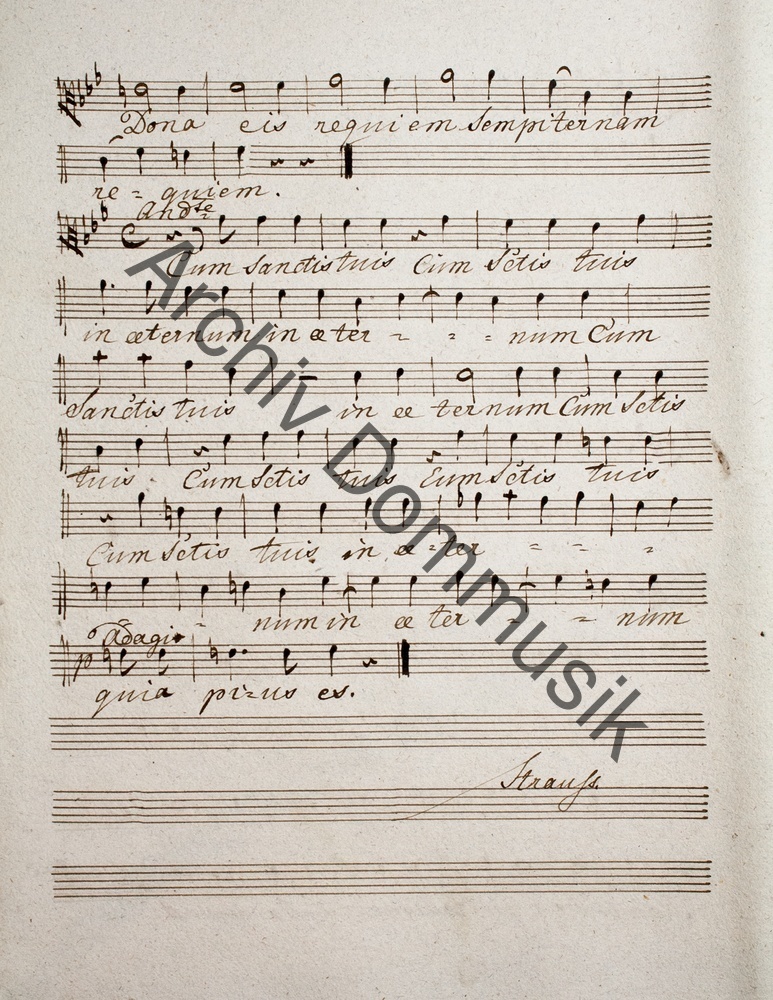 Dona eis requiem Sempiternam
re - quiem.
Andte
Cum Sanctis tuis Cum Sctis tuis
in æternum in æ ter - - - num Cum
Sanctis tuis in æ ternum Cum Sctis
tuis Cum Sctis tuis Cum Sctis tuis
Cum Sctis tuis in æ - ter - - -
- num in æ ter - - num
Adagio
p
quia pi-us es.
Strauss.
Archiv Dommusik